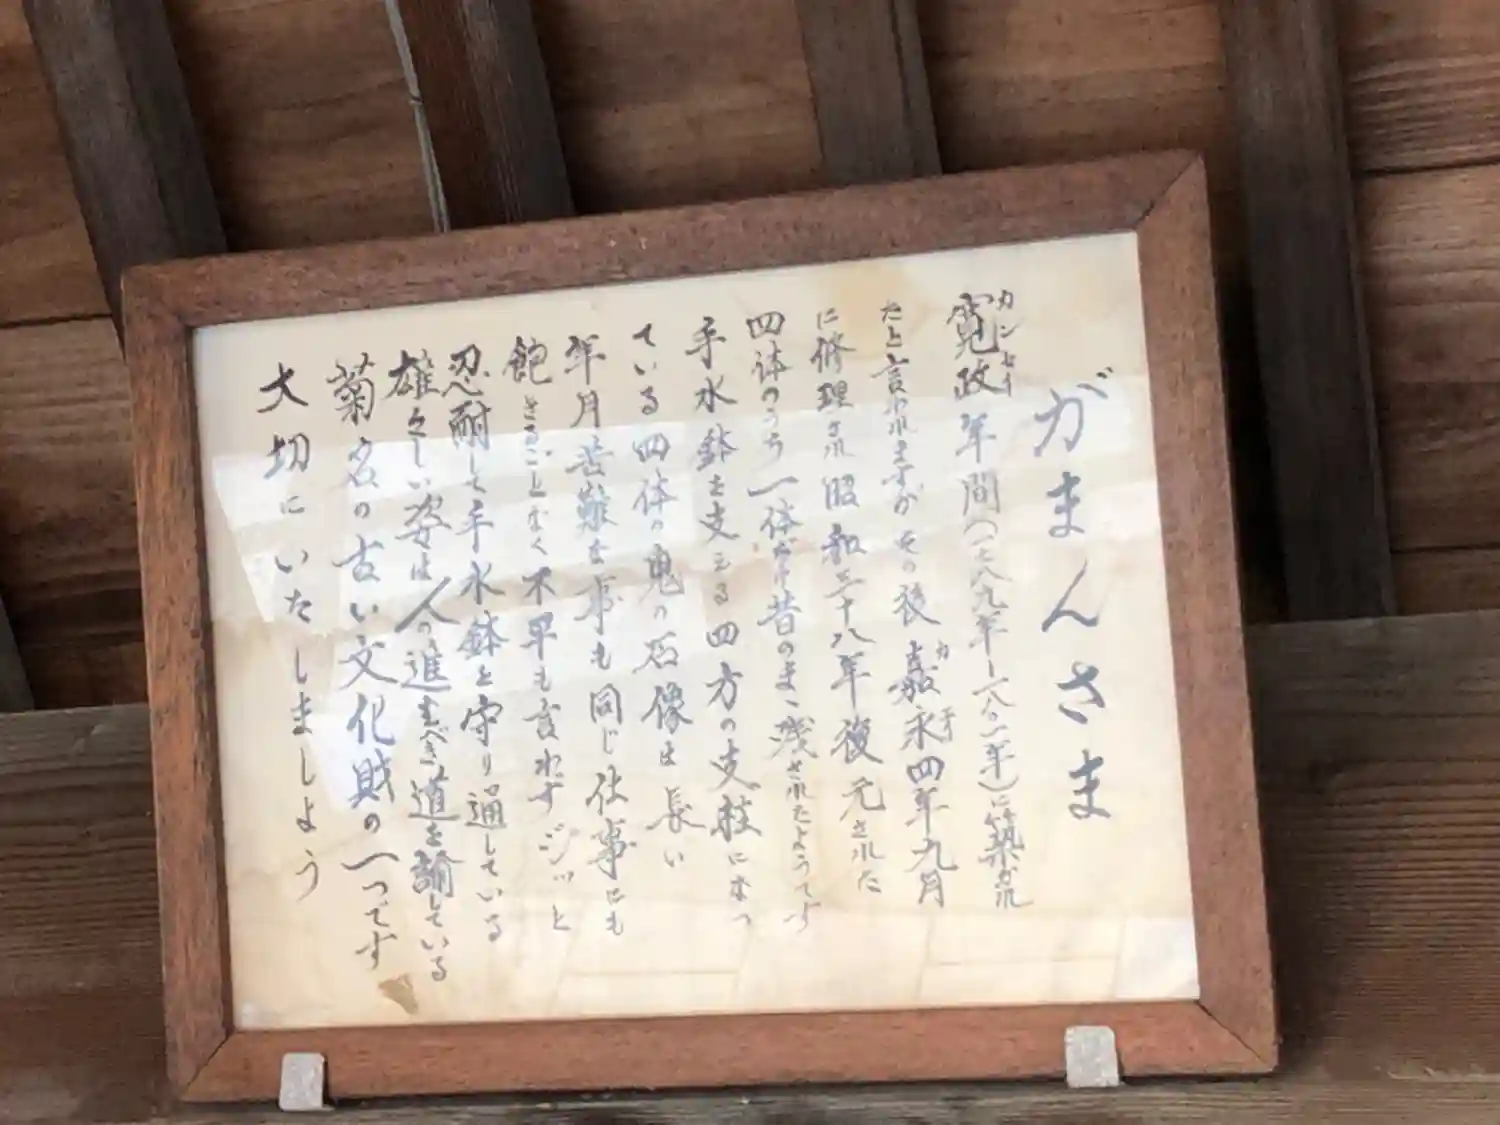 がまんさま
寛政年間(一七八九年ー一八〇一年)に築かれ
カンセー
たと言われますがその後嘉永四年九月
カエイ
に修理され昭和三十八年復元された
四体のうち一体だけ昔のまゝ残されたようです
手水鉢を支える四方の支柱になっ
ている四体の鬼の石像は長い
年月苦難な事も同じ仕事にも
飽きることなく不平も言わずジッと
忍耐して手水鉢を守り通している
雄々しい姿は人の進むべき道を諭している
菊名の古い文化財の一つです
大切にいたしましよう